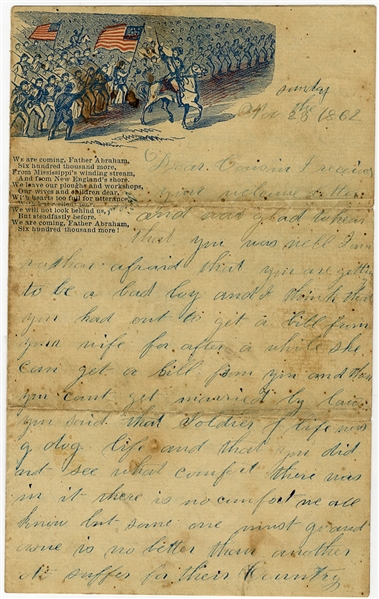 sundy
Nov 23 the 1862
We are coming, Father Abraham,
Six hundred thousand more,
From Mississippi's winding stream,
And from New England's shore.
We leave our ploughs and workshops,
Our wives and children dear,
With hearts too full for utterance,
We will not look behind us,
But steadfastly before.
We are coming, Father Abraham,
Six hundred thousand more!
Dear Cousin I receive
your welcome letter
and was glad to hear
that you was well I am
rather afraid that you are getting
to be a bad boy and I think that
you had out to get a bill from
your wife for after a while she
can get a bill from you and then
you cant get married by law
you said that Soldiers life was
a dog life and that you did
not see what comfort there was
in it there is no comfort we all
know but some one must go and
one is no better than another
to suffer for their Country